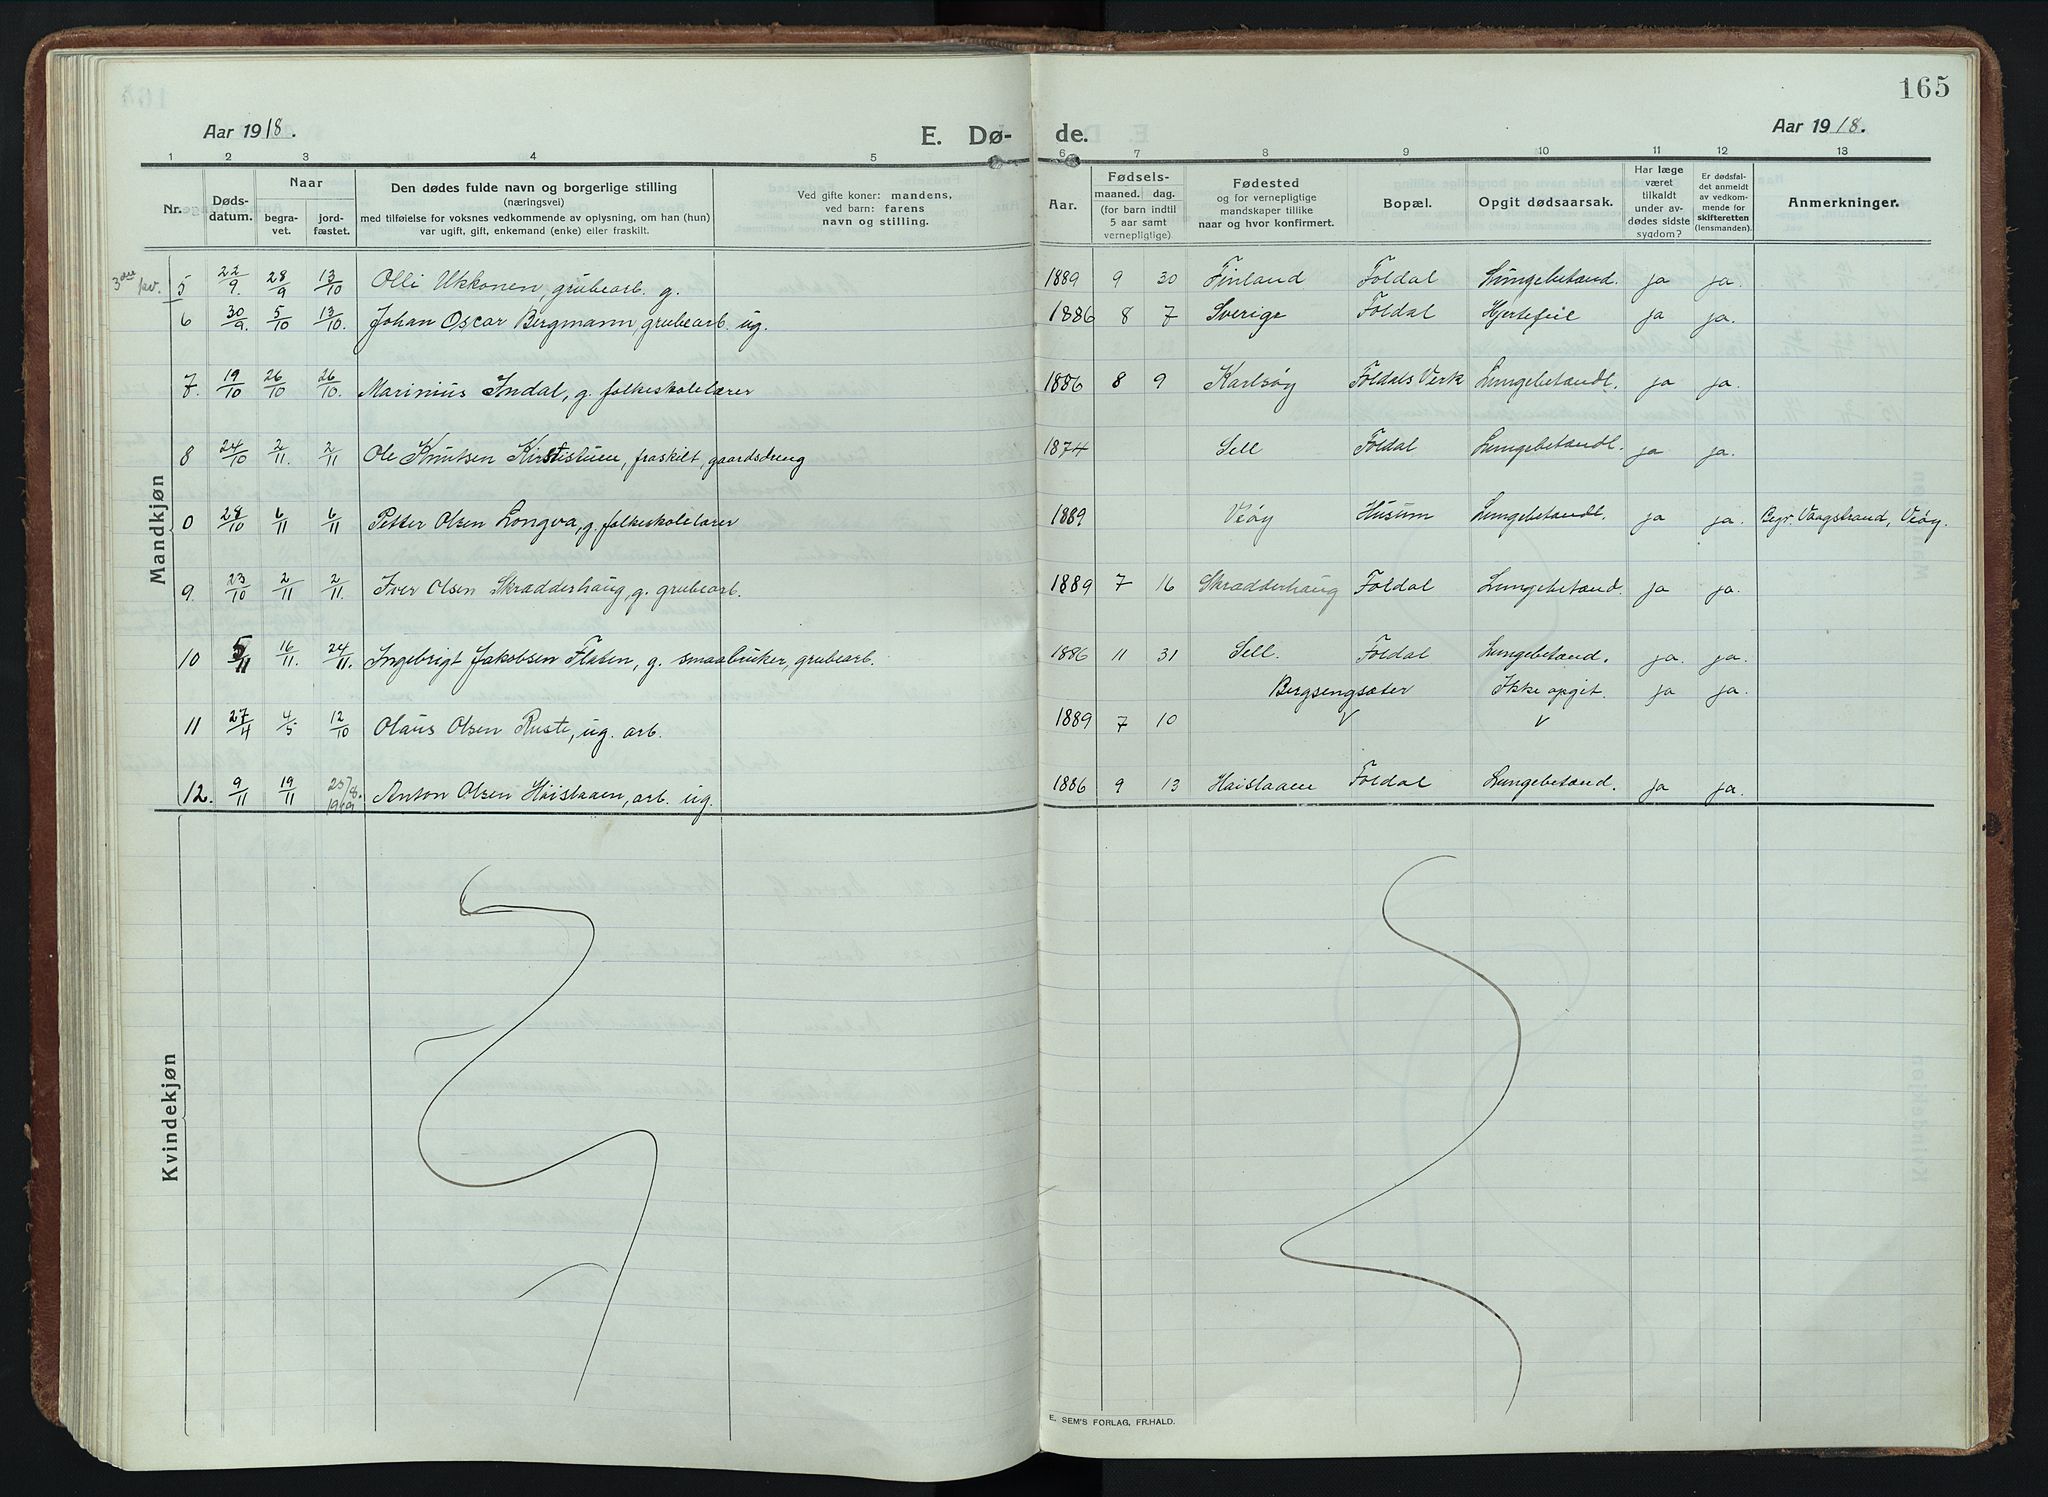 165
Aar 1918.
E. Dø-
de.
Aar 1918.
1 2 3 4 5 6 7 8 9 10 11 12 13
Nr. Døds-datum. Naar begra-vet. jord-fæstet. Den dødes fulde navn og borgerlige stilling (næringsvei) med tilføielse for voksnes vedkommende av oplysning, om han (hun) var ugift, gift, enkemand (enke) eller fraskilt. Ved gifte koner: mandens, ved barn: farens navn og stilling. Aar. Fødsels- maaned. dag. (for barn indtil 5 aar samt vernepligtige). Fødested og for vernepligtige mandskaper tillike naar og hvor konfirmert. Bopæl. Opgit dødsaarsak. Har læge været tilkaldt under av-dødes sidste sygdom? Er dødsfal-det anmeldt av vedkom-mende for skifteretten (lensmanden). Anmerkninger.
Mandkjøn
3die kv. 5 22/9. 28/9 13/10 Olli Ukkonen, grubearb. g. 1889 9 30 Finland Foldal Lungebetænd. ja ja.
6 30/9. 5/10 13/10. Johan Oscar Bergmann, grubearb. ug. 1886 8 7 Sverige Foldal Hjertefeil ja ja.
7. 19/10 26/10 26/10. Marinius Indal, g. folkeskolelærer 1886 8 9 Karlsøy Foldals Verk Lungebetændl. ja ja.
8 24/10 2/11. 2/11 Ole Knutsen Kirstistuen, fraskilt, gaardsdreng 1874 Sell Foldal Lungebetændl. ja ja.
0 28/10 6/11 6/11 Petter Olsen Longva, g. folkeskolelærer 1889 Veøy Husum Lungebetændl. ja ja. Begr. Vaagstrand, Veøy.
9. 23/10 2/11 2/11. Iver Olsen Skradderhaug, g. grubearb. 1889 7 16 Skradderhaug Foldal Lungebetænd. ja ja.
10 5/11 16/11. 24/11. Ingebrigt Jakobsen Flaten, g. smaabruker, grubearb. 1886 11 31 Sell. Foldal Lungebetænd. ja. ja.
Bergsengsæter Ikke opgit. ja ja.
11 27/4 4/5 12/10 Olaus Olsen Ruste, ug. arb. 1889 7 10 V V
12. 9/11 19/11 25/8. 1919 Anton Olsen Haistaaen, arb. ug. 1886 9 13 Haistaaen Foldal Lungebetænd. ja ja.
Kvindekjøn
E. SEM'S FORLAG, FR.HALD.